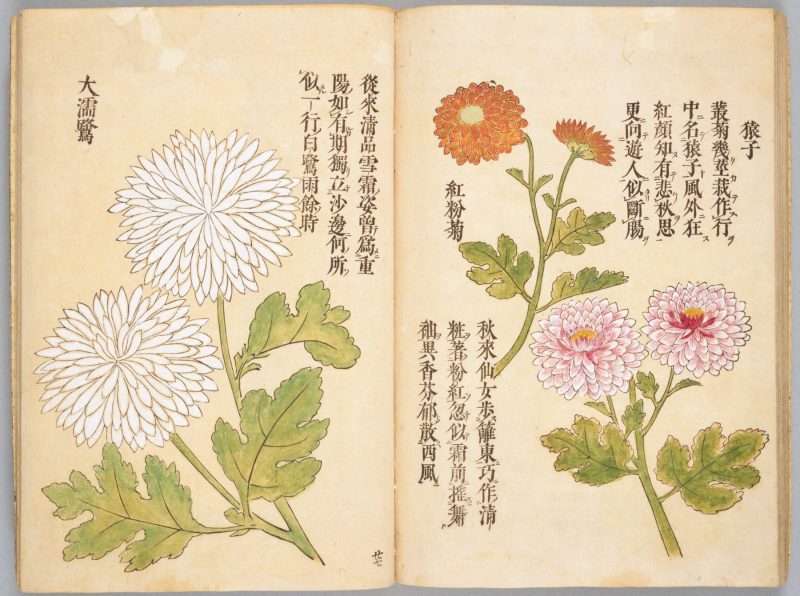 猿子
叢菊幾莖栽作行
中名猿子風外狂
紅顔知有悲秋思
更向遊人似斷膓
紅粉菊
秋來仙女歩籬東巧作清
粧著粉紅忽似霜前搖舞
袖異香芬郁散西風
從來清品雪霜姿曽爲重
陽如有期獨立沙邊何所
似一行白鷺雨餘時
大濡鷺
廿七